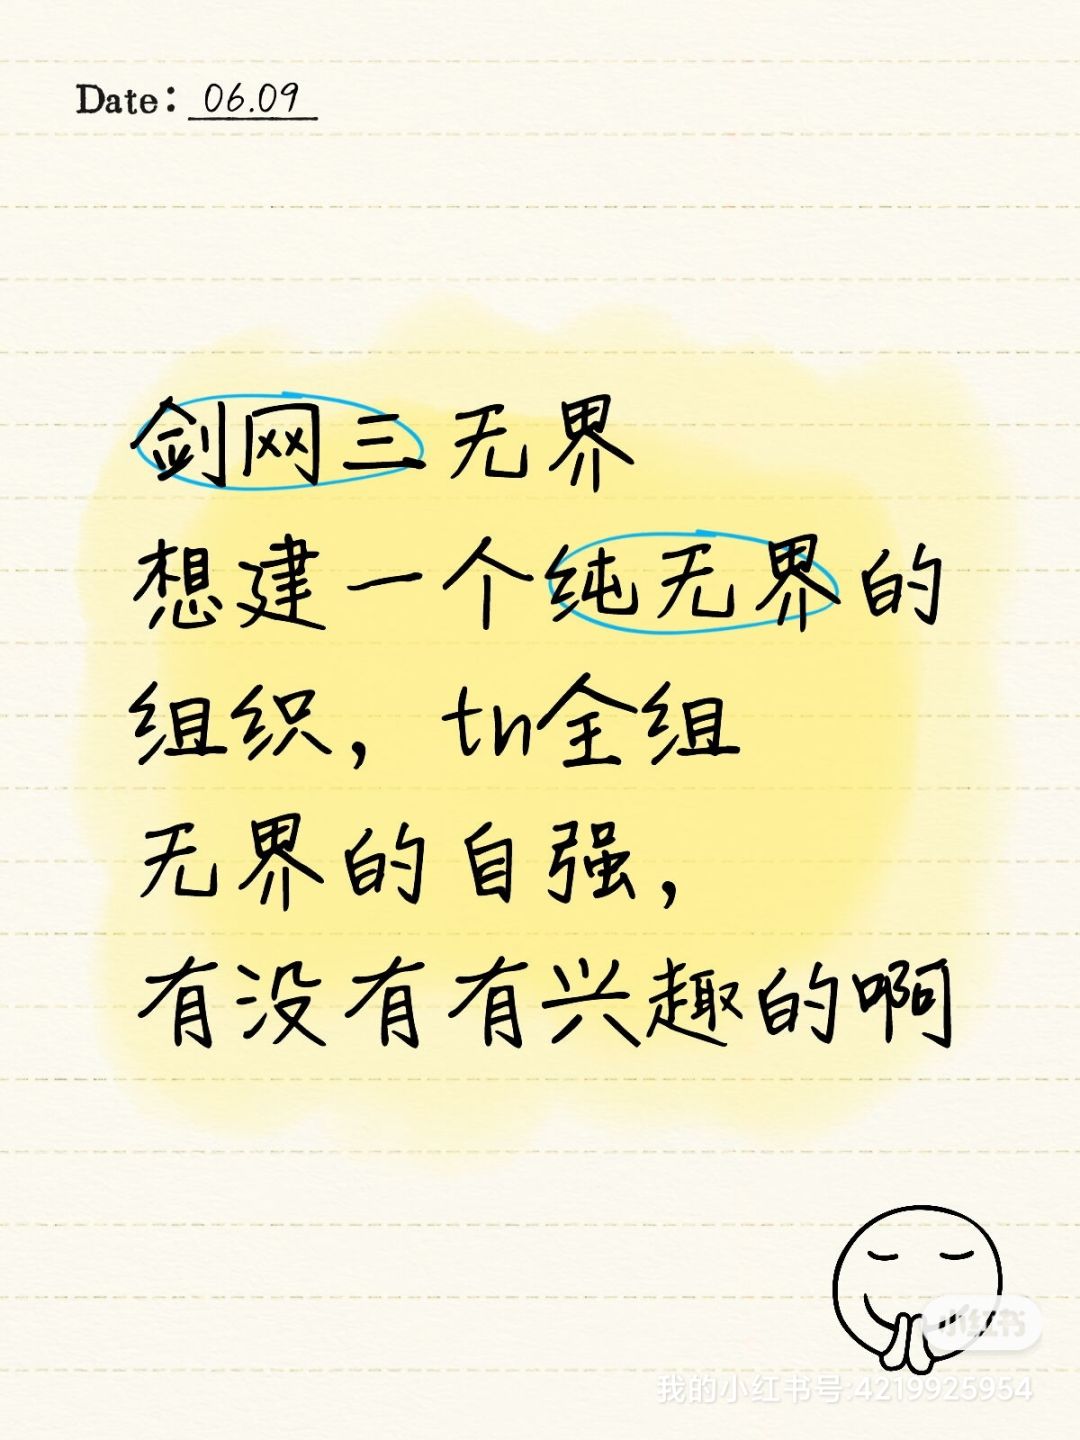 Date: 06.09
剑网三无界
想建一个纯无界的
组织，tn全组
无界的自强，
有没有有兴趣的啊
小红书
我的小红书号:4219925954